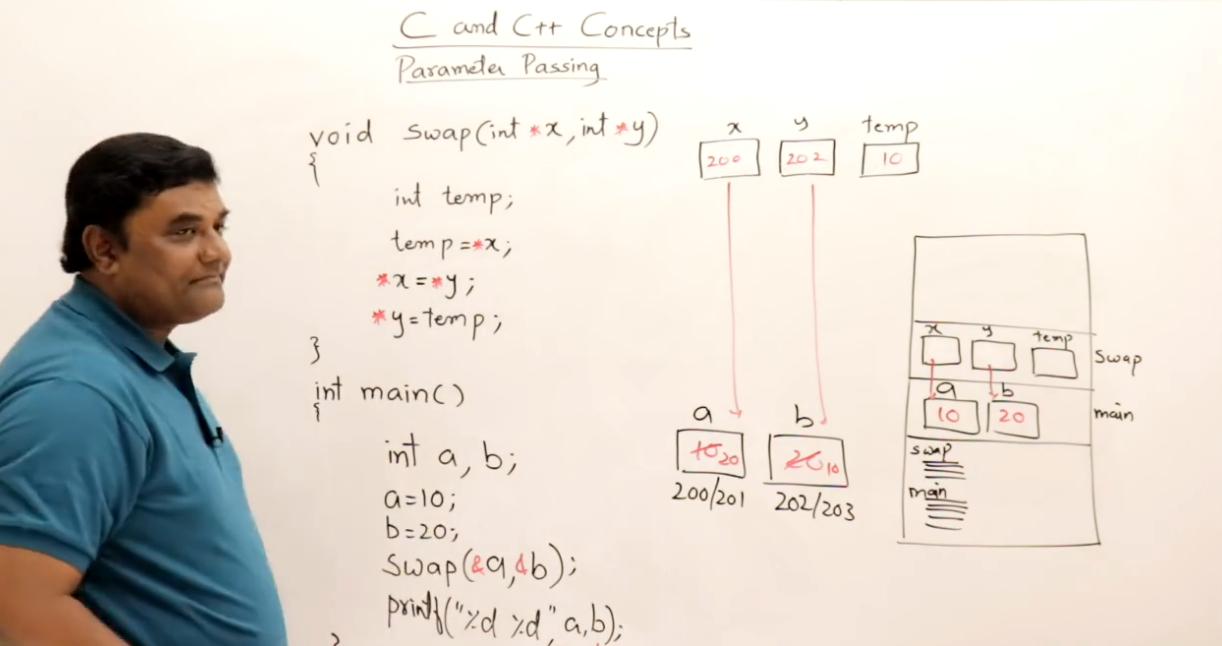 C and C++ Concepts
Parameter Passing
void swap(int *x, int *y)
{
int temp;
temp=*x;
*x=*y;
*y=temp;
}
int main()
{
int a, b;
a=10;
b=20;
swap(&a,&b);
printf("%d %d",a,b);
}
x y temp
200 202 10
a b
10 20 20 10
200/201 202/203
x y temp
swap
a b
10 20
main
swap
main